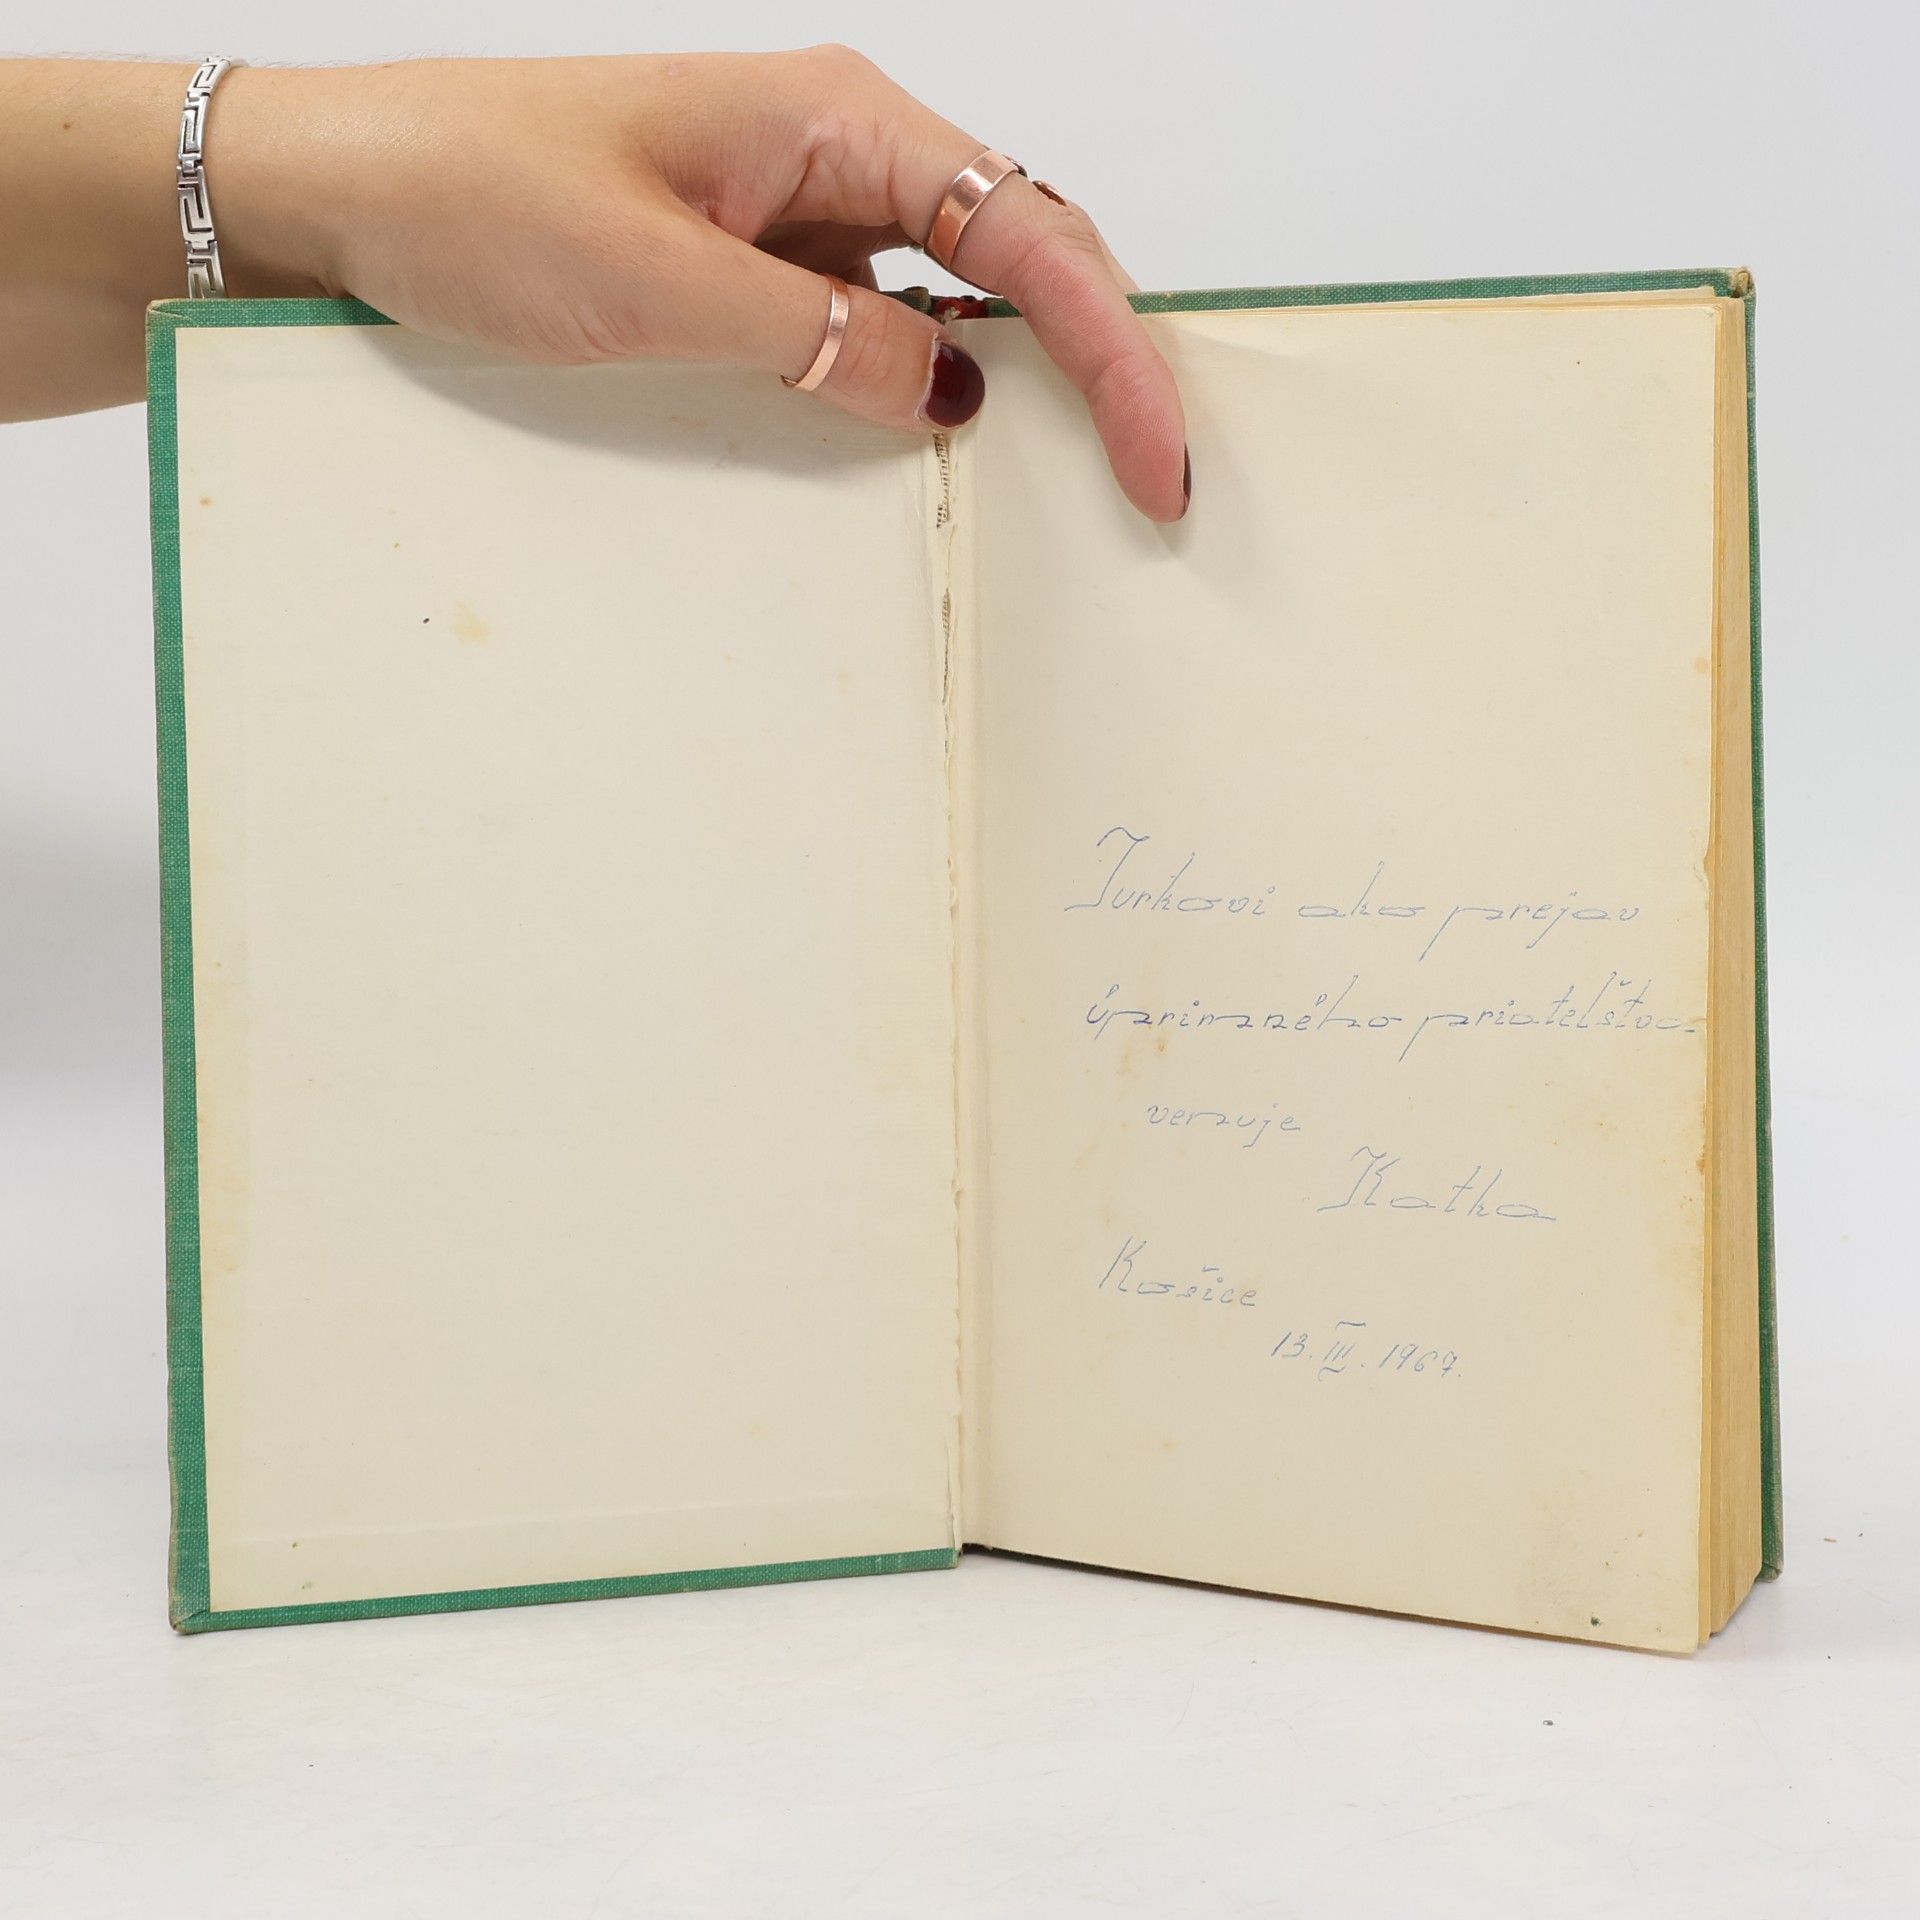 Jurkovi ako prejav
úprimného priateľštva
venuje
Katka
Košice
13. III. 1967.